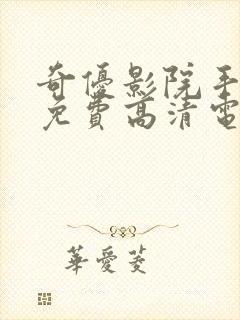 奇優影院手
免費高清電
華愛菱